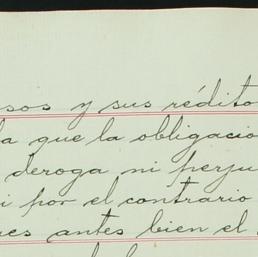 sos y sus rédito
la que la obligacio
deroga ni perju
i por el contrario
es antes bien el